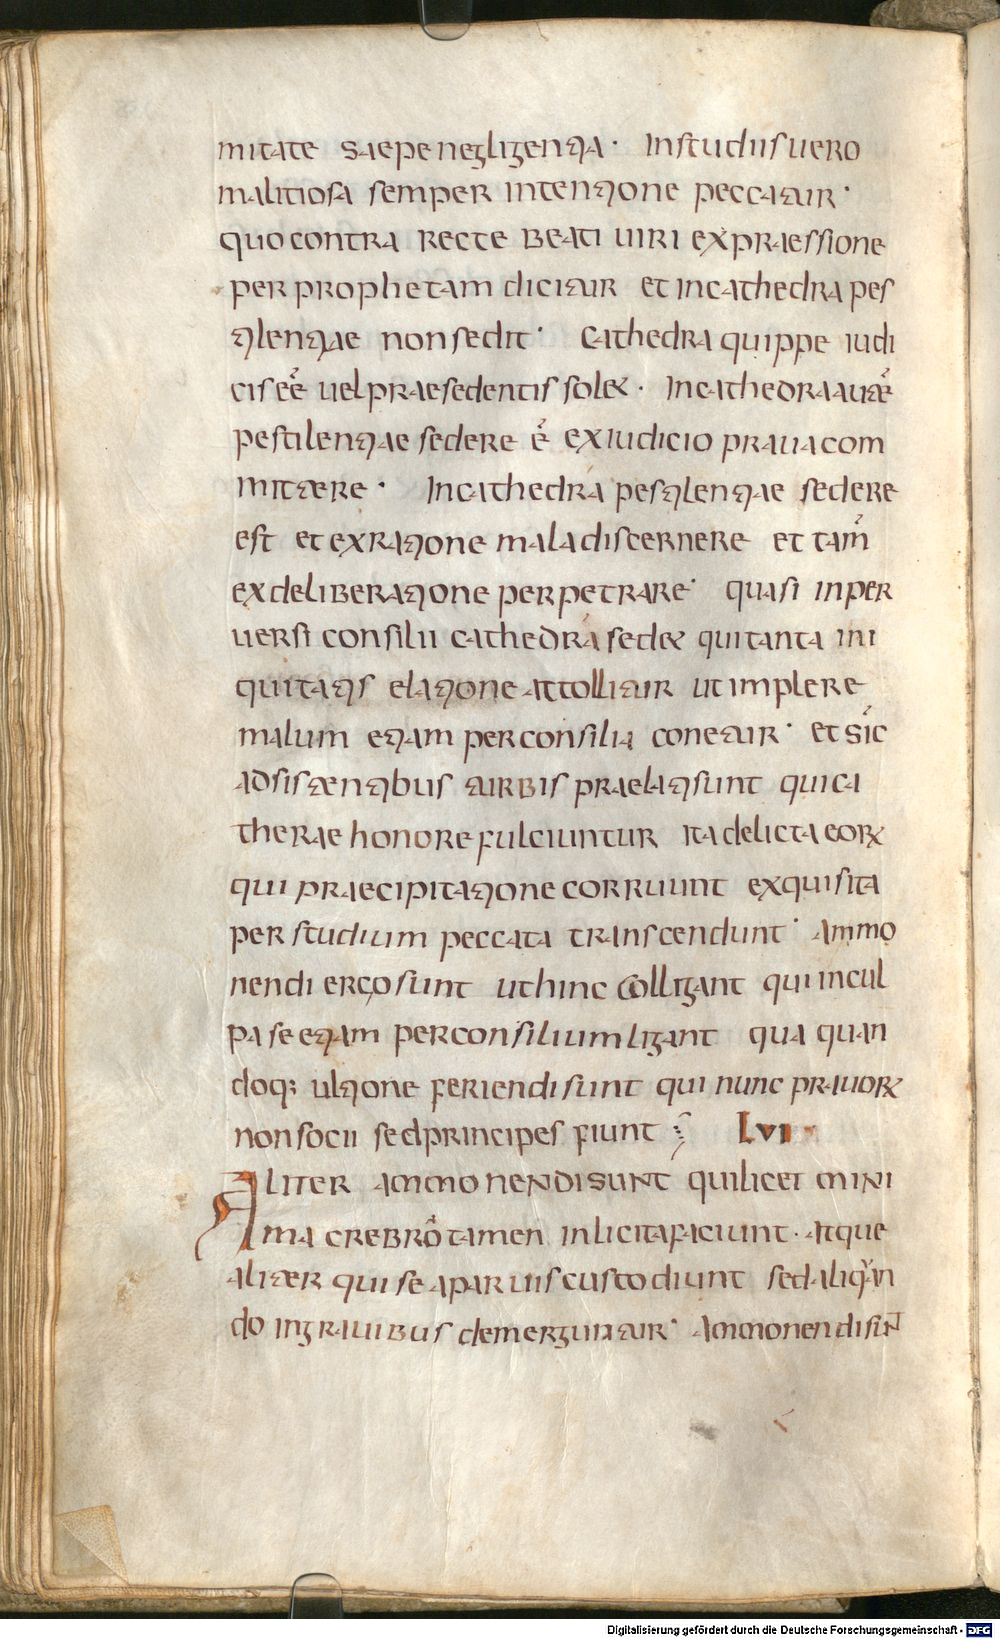 mitate saepe neglegentia · In studiis uero
malitiosa semper intentione peccatur ·
quo contra recte beati uiri expraessione
per prophetam dicitur et in cathedra pes
tilentiae non sedit · Cathedra quippe iudi
cis eē uel praesedentis solet · In cathedra autē
pestilentiae sedere ē ex iudicio praua com
mittere · In cathedra pestilentiae sedere
est et ex ratione mala discernere et tam̄
ex deliberatione perpetrare · quasi in per
uersi consilii cathedra sedet qui tanta ini
quitatis elatione attollitur ut implere
malum etiam per consilia conetur · et sic̄
adsistentibus turbis praelati sunt qui ca
therae honore fulciuntur ita delicta eorꝝ
qui praecipitatione corruunt exquisita
per studium peccata transcendunt · Ammo
nendi ergo sunt ut hinc colligant qui in cul
pa se etiam per consilium ligant qua quan
doq; ultione feriendi sunt qui nunc prauorꝝ
non socii sed principes fiunt ; LVI
Aliter ammonendi sunt qui licet mini
ma crebro tamen inlicita faciunt · atque
aliter qui se a paruis custodiunt sed aliq̄n
do in grauibus demerguntur · Ammonendi sunt
Digitalisierung gefördert durch die Deutsche Forschungsgemeinschaft - DFG